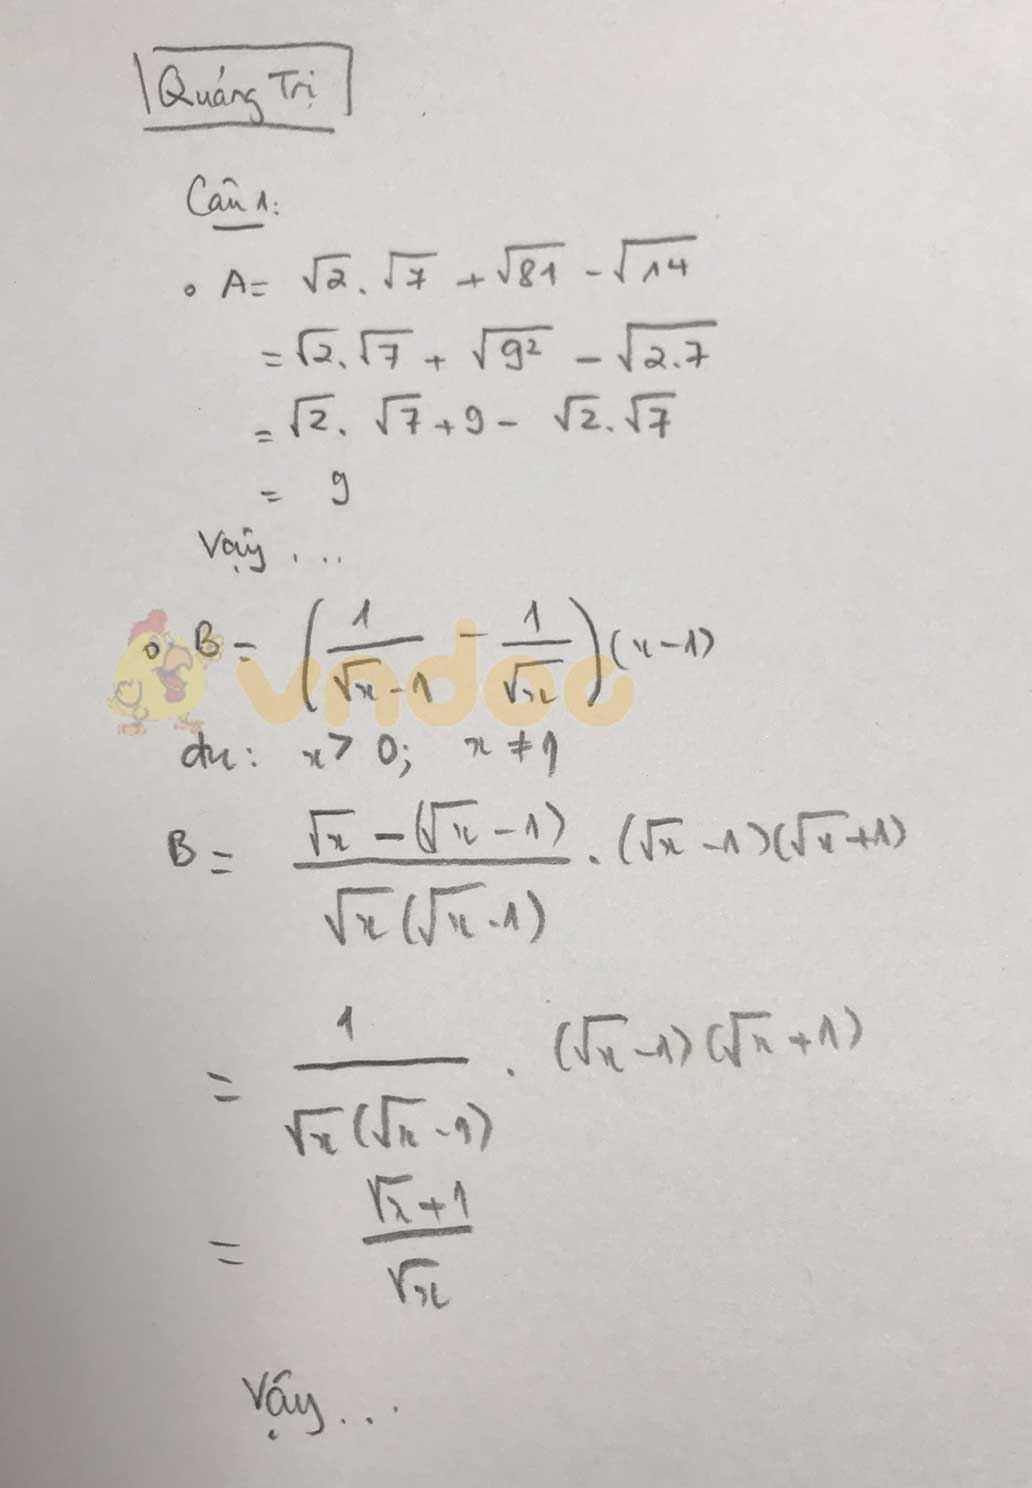 Quảng Trị
Câu 1:
• A = √2 . √7 + √81 - √14
= √2 . √7 + √9² - √2.7
= √2 . √7 + 9 - √2 . √7
= 9
Vậy ...
• B = (1/(√x - 1) - 1/√x)(x - 1)
đk: x > 0; x ≠ 1
B = (√x - (√x - 1))/(√x(√x - 1)) . (√x - 1)(√x + 1)
= 1/(√x(√x - 1)) . (√x - 1)(√x + 1)
= (√x + 1)/√x
Vậy ...
vndoc